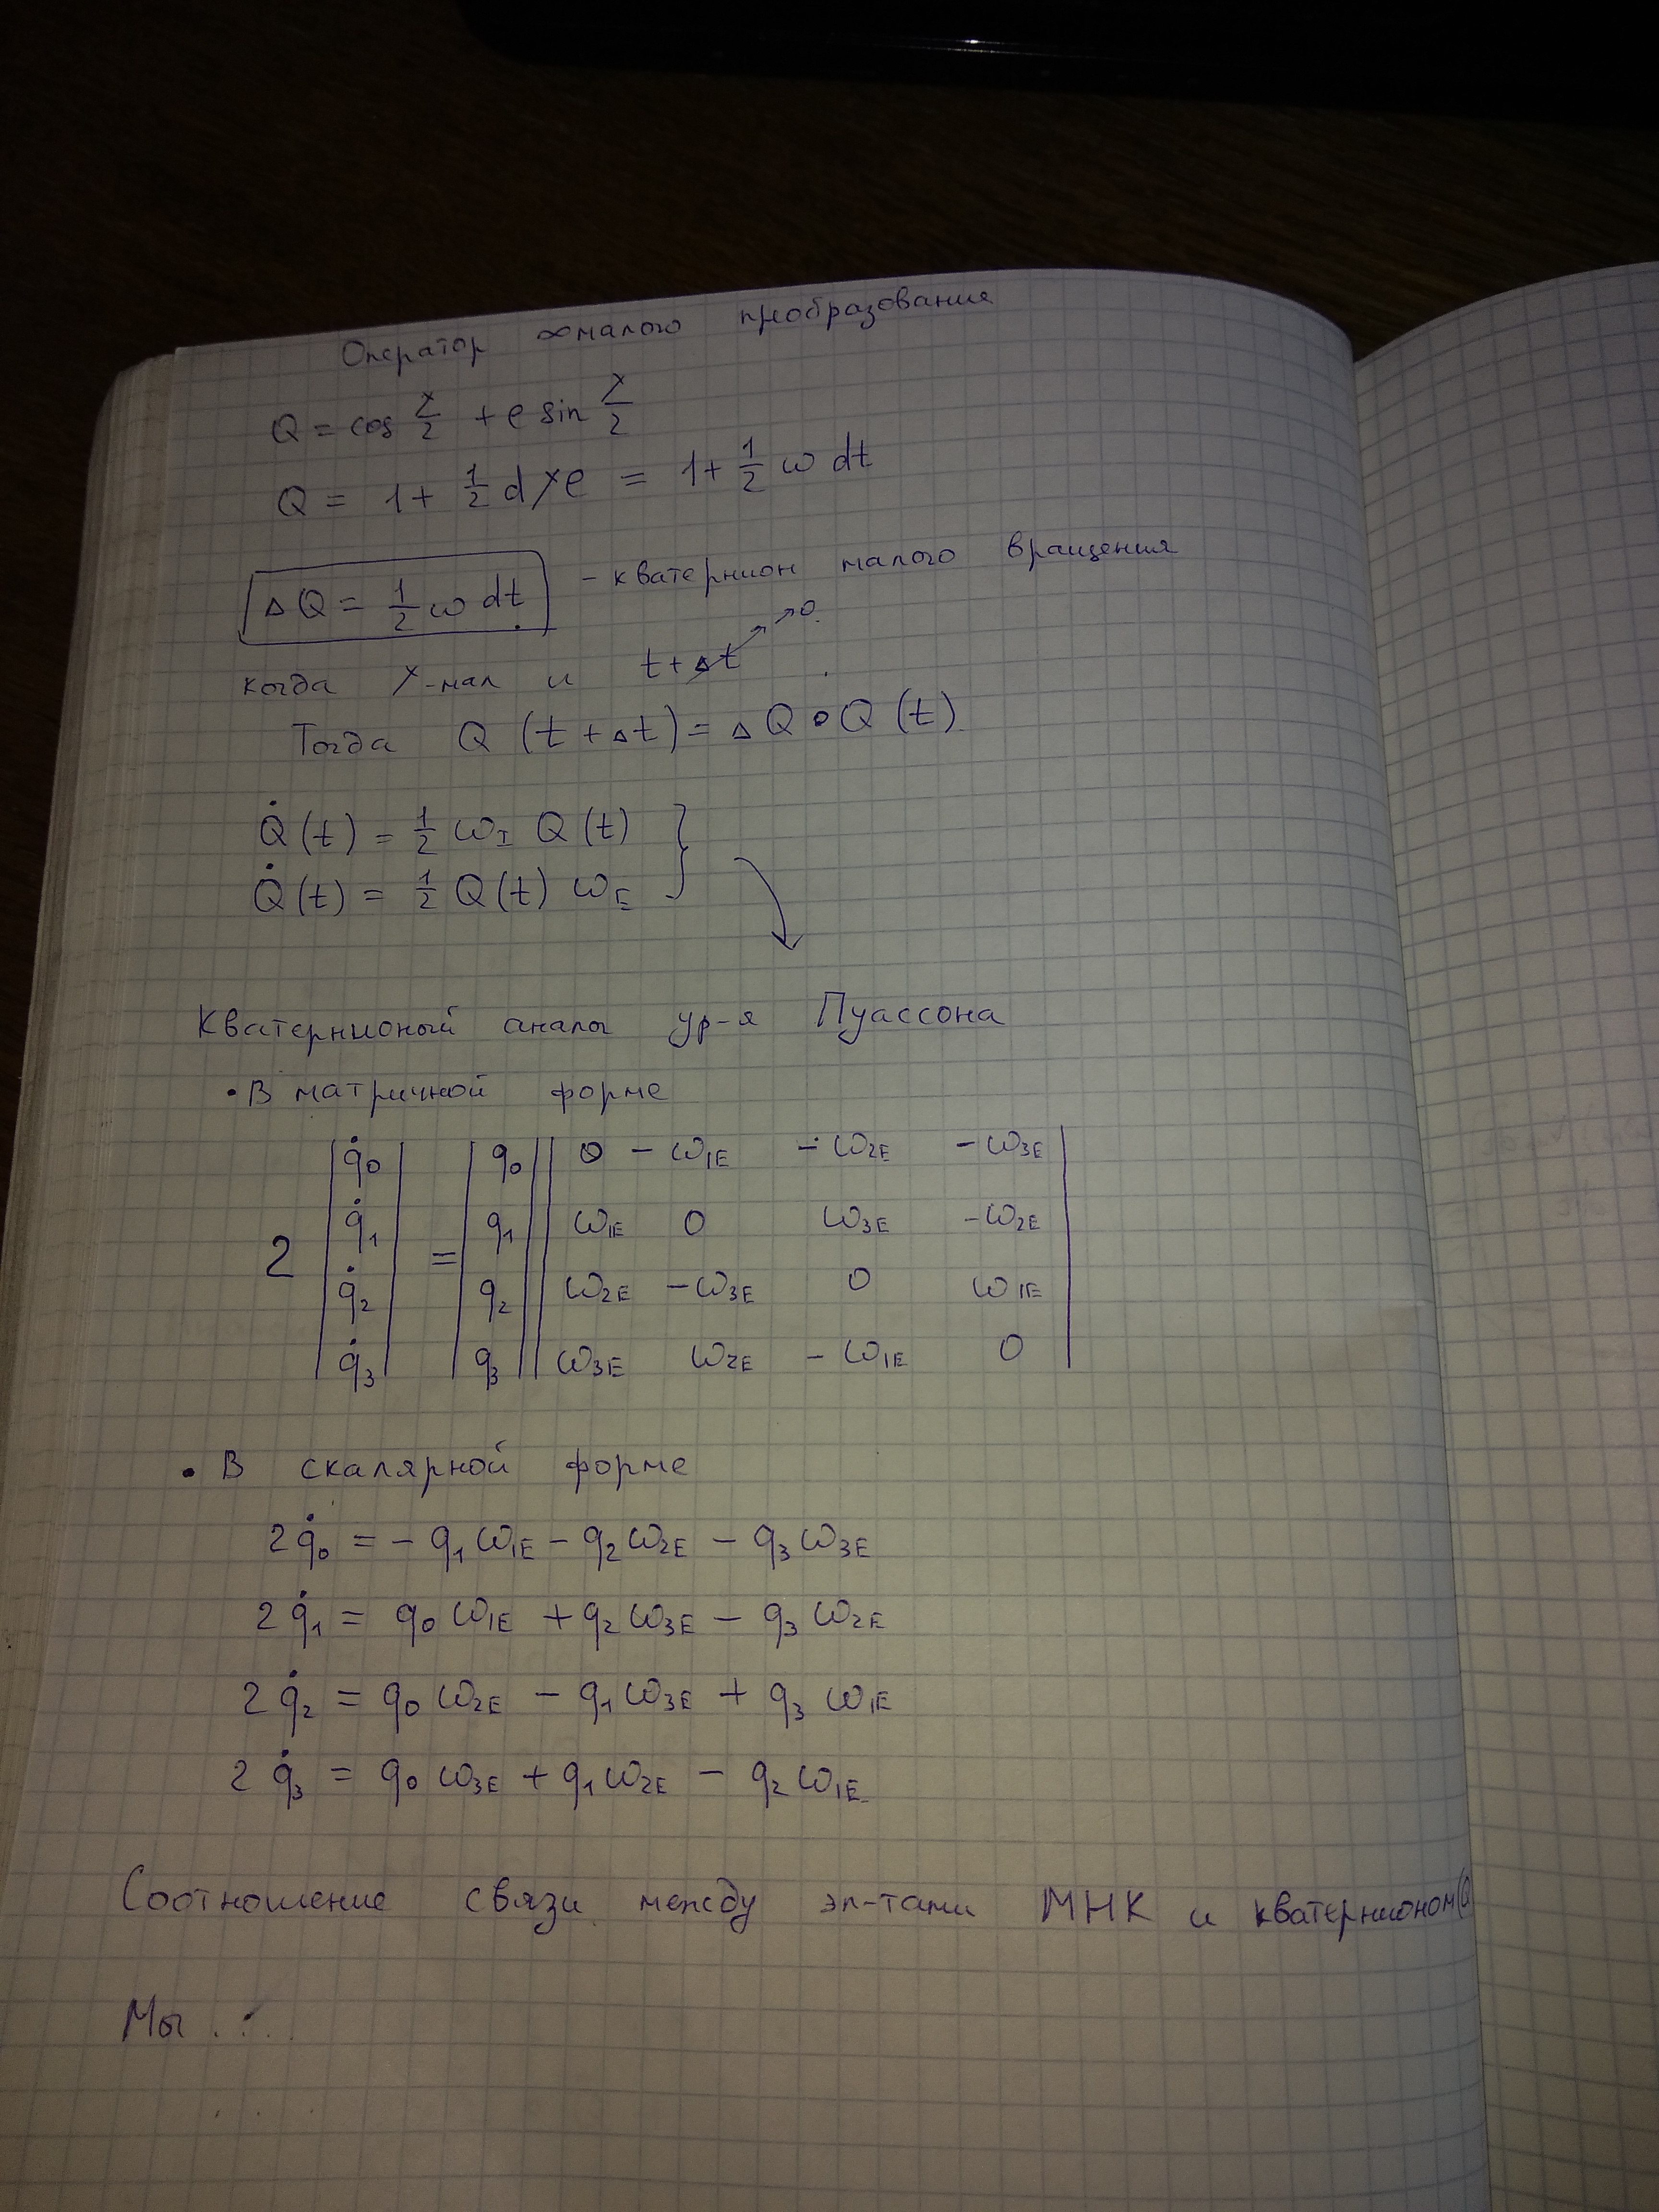 Оператор ∞малого преобразования
Q = cos χ/2 + e sin χ/2
Q = 1 + 1/2 dχe = 1 + 1/2 ω dt
ΔQ = 1/2 ω dt - кватернион малого вращения
когда χ-мал и t+Δt → 0
Тогда Q (t+Δt) = ΔQ∘Q(t)
Q̇(t) = 1/2 ω_I Q(t)
Q̇(t) = 1/2 Q(t) ω_E
Кватернионый аналог ур-я Пуассона
• В матричной форме
2 |q̇0| = |q0| |0 -ω1E -ω2E -ω3E|
|q̇1| |q1| |ω1E 0 ω3E -ω2E|
|q̇2| |q2| |ω2E -ω3E 0 ω1E|
|q̇3| |q3| |ω3E ω2E -ω1E 0|
• В скалярной форме
2q̇0 = -q1ω1E - q2ω2E - q3ω3E
2q̇1 = q0ω1E + q2ω3E - q3ω2E
2q̇2 = q0ω2E - q1ω3E + q3ω1E
2q̇3 = q0ω3E + q1ω2E - q2ω1E
Соотношение связи между эл-тами МНК и кватернионом
Мы ...